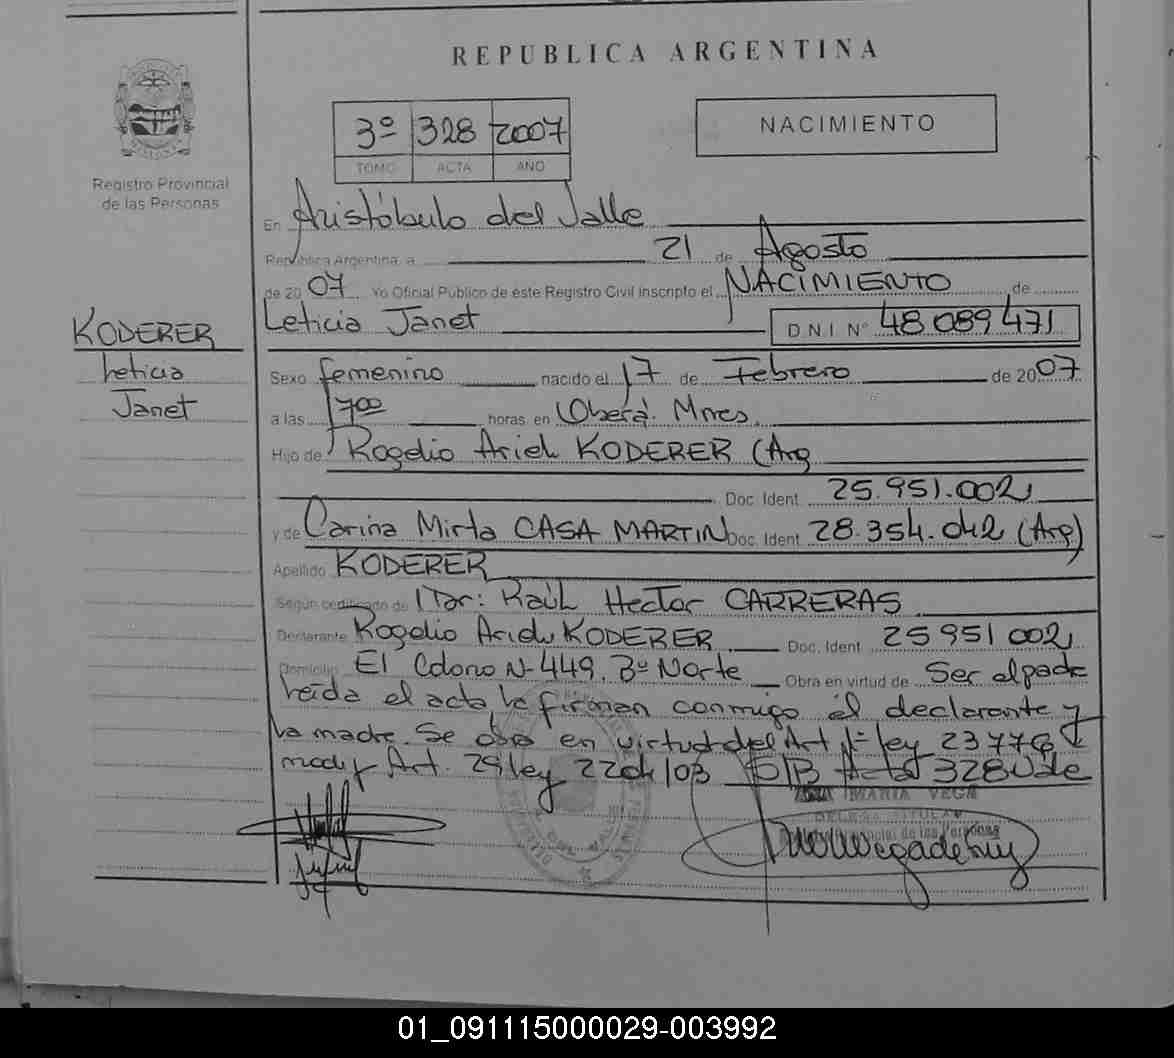 REPUBLICA ARGENTINA
3º 328 2007
TOMO ACTA AÑO
NACIMIENTO
Registro Provincial
de las Personas
En Aristóbulo del Valle
República Argentina, a 21 de Agosto
de 2007 Yo Oficial Público de este Registro Civil inscripto el NACIMIENTO de
Leticia Janet D.N.I. Nº 48 089 471
KODERER
Leticia
Janet
Sexo femenino nacido el 17 de Febrero de 2007
a las 1700 horas en Oberá. Mnes.
Hijo de Rogelio Ariel KODERER (Arg
Doc. Ident. 25.951.002
y de Carina Mirta CASA MARTIN Doc. Ident. 28.354.042 (Arg)
Apellido KODERER
Según certificado de Raúl Hector CARRERAS
Declarante Rogelio Ariel KODERER Doc. Ident. 25951002
Domicilio El Colono Nº 449, Bº Norte Obra en virtud de Ser el padre
Leída el acta, la firman conmigo el declarante y
la madre. Se obra en virtud del Art 1º ley 23776
modif Art. 29 ley Acta 328
MARIA VEGA
01_091115000029-003992